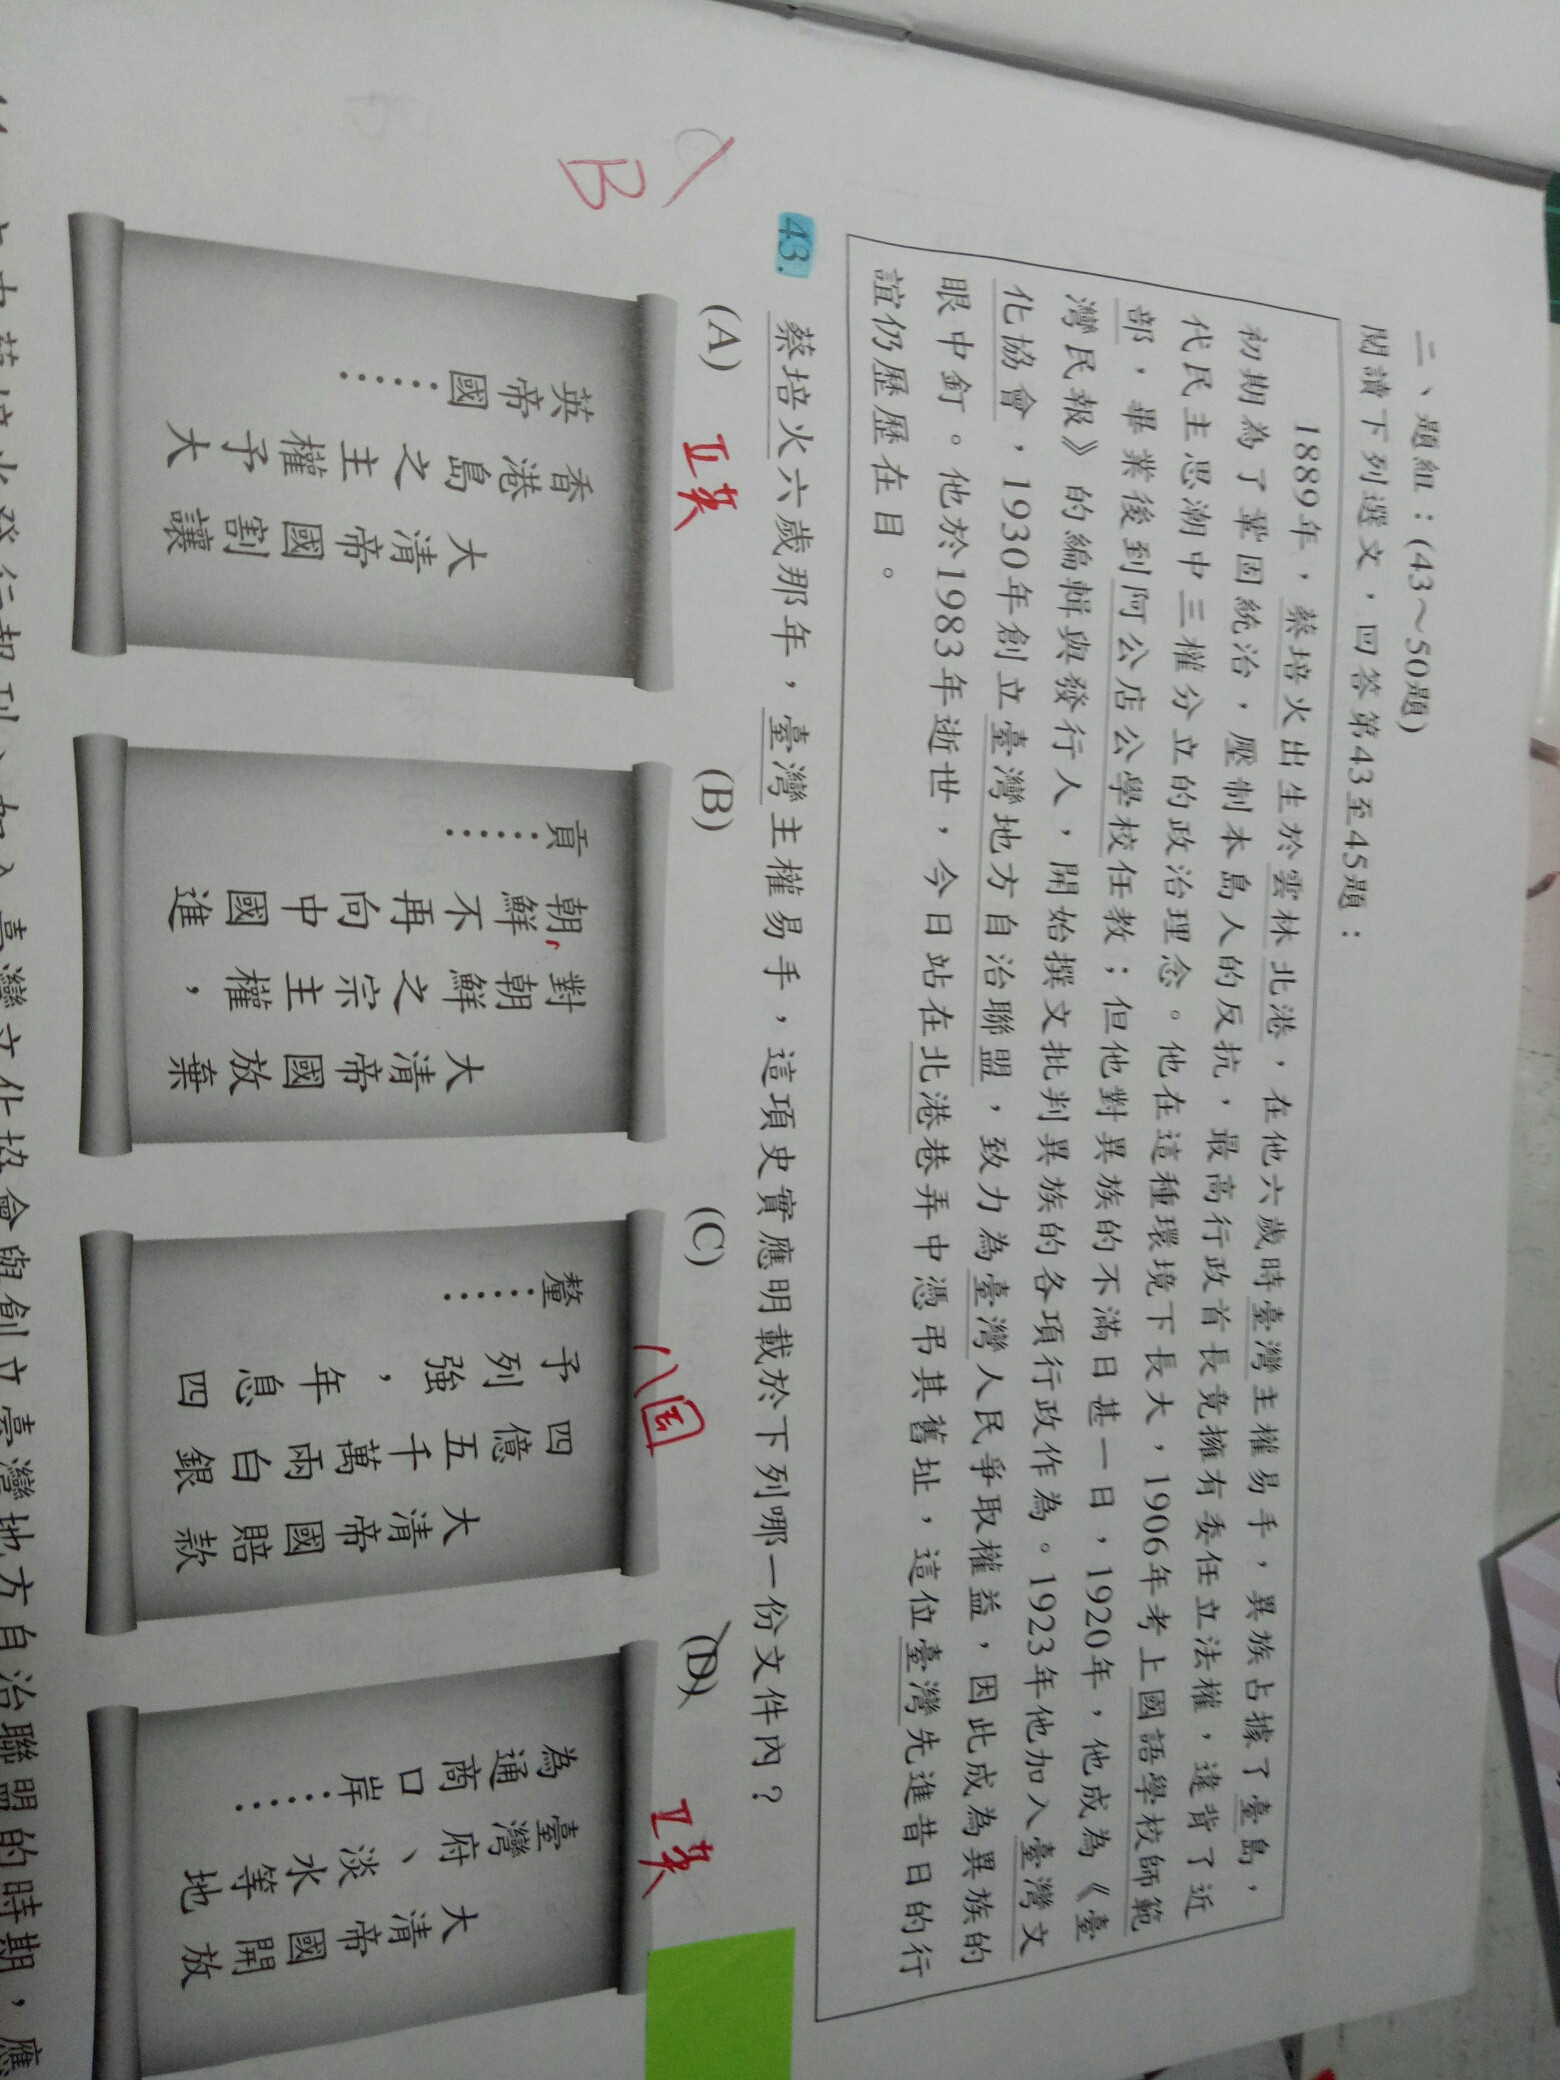 二、題組：(43～50題)
閱讀下列選文，回答第43至45題：
1889年，蔡培火出生於雲林北港，在他六歲時臺灣主權易手，異族占據了臺島，
初期為了鞏固統治，壓制本島人的反抗，最高行政首長竟擁有委任立法權，違背了近
代民主思潮中三權分立的政治理念。他在這種環境下長大，1906年考上國語學校師範
部，畢業後到阿公店公學校任教；但他對異族的不滿日甚一日，1920年，他成為《臺
灣民報》的編輯與發行人，開始撰文批判異族的各項行政作為。1923年他加入臺灣文
化協會，1930年創立臺灣地方自治聯盟，致力為臺灣人民爭取權益，因此成為異族的
眼中釘。他於1983年逝世，今日站在北港巷弄中憑弔其舊址，這位臺灣先進昔日的行
誼仍歷歷在目。
43. 蔡培火六歲那年，臺灣主權易手，這項史實應明載於下列哪一份文件內？
B
(A)
工英
大清帝國割讓
香港島之主權予大
英帝國……
(B)
大清帝國放棄
對朝鮮之宗主權，
朝鮮不再向中國進
貢……
(C)
八国
大清帝國賠款
四億五千萬兩白銀
予列強，年息四
釐……
(D)
工英
大清帝國開放
臺灣府、淡水等地
為通商口岸……
蔡培火發行報刊、加入臺灣文化協會與創立臺灣地方自治聯盟的時期，應